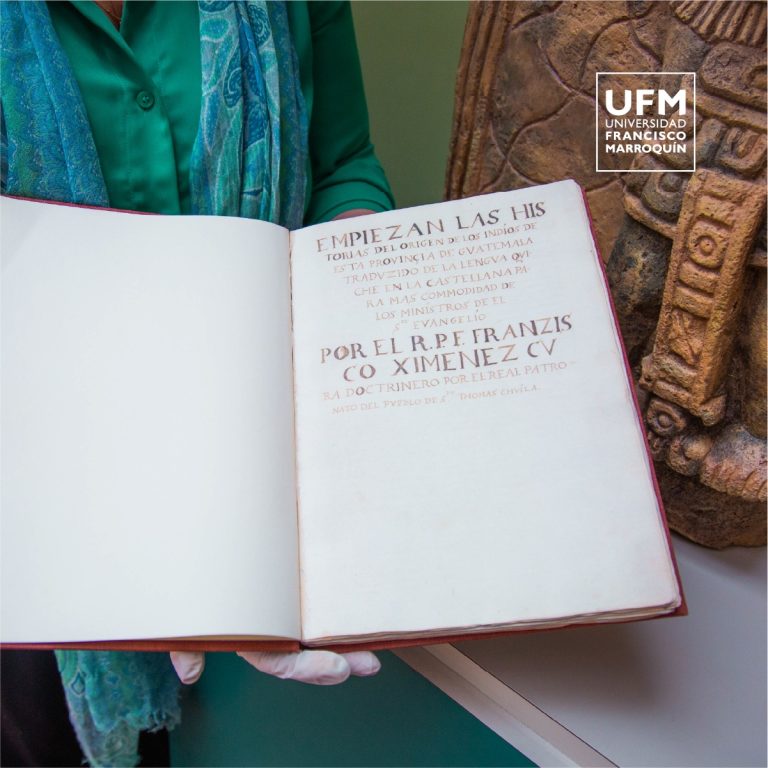 UFM
UNIVERSIDAD
FRANCISCO
MARROQUÍN
EMPIEZAN LAS HIS
TORIAS DEL ORIGEN DE LOS INDIOS DE
ESTA PROVINCIA DE GUATEMALA
TRADVZIDO DE LA LENGVA QVI
CHE EN LA CASTELLANA PA
RA MAS COMMODIDAD DE
LOS MINISTROS DE EL
S.TO EVANGELIO
POR EL R.P.F. FRANZIS
CO XIMENEZ CV
RA DOCTRINERO POR EL REAL PATRO
NATO DEL PVEBLO DE S.TO THOMAS CHVILA.